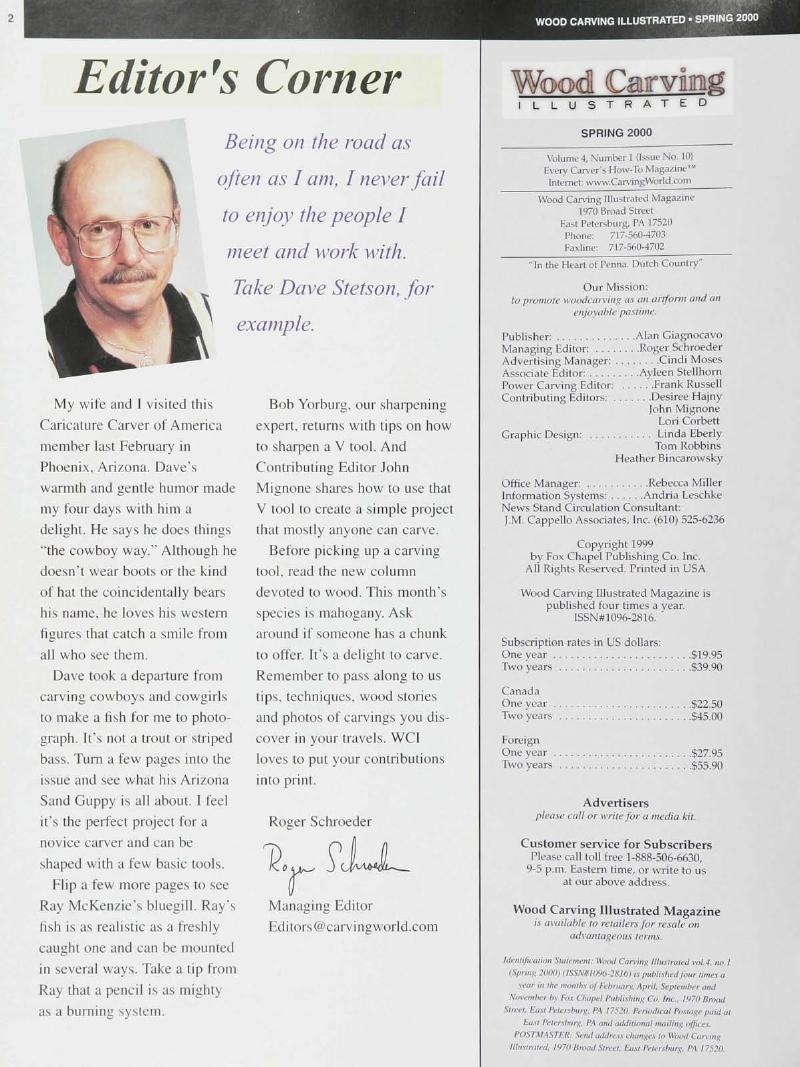 2
WOOD CARVING ILLUSTRATED • SPRING 2000
Editor's Corner
Being on the road as
often as I am, I never fail
to enjoy the people I
meet and work with.
Take Dave Stetson, for
example.
My wife and I visited this
Caricature Carver of America
member last February in
Phoenix, Arizona. Dave's
warmth and gentle humor made
my four days with him a
delight. He says he does things
"the cowboy way." Although he
doesn't wear boots or the kind
of hat the coincidentally bears
his name, he loves his western
figures that catch a smile from
all who see them.
Dave took a departure from
carving cowboys and cowgirls
to make a fish for me to photo-
graph. It's not a trout or striped
bass. Turn a few pages into the
issue and see what his Arizona
Sand Guppy is all about. I feel
it's the perfect project for a
novice carver and can be
shaped with a few basic tools.
Flip a few more pages to see
Ray McKenzie's bluegill. Ray's
fish is as realistic as a freshly
caught one and can be mounted
in several ways. Take a tip from
Ray that a pencil is as mighty
as a burning system.
Bob Yorburg, our sharpening
expert, returns with tips on how
to sharpen a V tool. And
Contributing Editor John
Mignone shares how to use that
V tool to create a simple project
that mostly anyone can carve.
Before picking up a carving
tool, read the new column
devoted to wood. This month's
species is mahogany. Ask
around if someone has a chunk
to offer. It's a delight to carve.
Remember to pass along to us
tips, techniques, wood stories
and photos of carvings you dis-
cover in your travels. WCI
loves to put your contributions
into print.
Roger Schroeder
Roger Schroeder
Managing Editor
Editors@carvingworld.com
Wood Carving
ILLUSTRATED
SPRING 2000
Volume 4, Number 1 (Issue No. 10)
Every Carver's How-To Magazine™
Internet: www.CarvingWorld.com
Wood Carving Illustrated Magazine
1970 Broad Street
East Petersburg, PA 17520
Phone: 717-560-4703
Faxline: 717-560-4702
"In the Heart of Penna. Dutch Country"
Our Mission:
to promote woodcarving as an artform and an
enjoyable pastime.
Publisher: . . . . . . . . . . . . . .Alan Giagnocavo
Managing Editor: . . . . . . . .Roger Schroeder
Advertising Manager: . . . . . . . .Cindi Moses
Associate Editor: . . . . . . . . .Ayleen Stellhorn
Power Carving Editor: . . . . . .Frank Russell
Contributing Editors: . . . . . . .Desiree Hajny
John Mignone
Lori Corbett
Graphic Design: . . . . . . . . . . . Linda Eberly
Tom Robbins
Heather Bincarowsky
Office Manager: . . . . . . . . . . .Rebecca Miller
Information Systems: . . . . . .Andria Leschke
News Stand Circulation Consultant:
J.M. Cappello Associates, Inc. (610) 525-6236
Copyright 1999
by Fox Chapel Publishing Co. Inc.
All Rights Reserved. Printed in USA
Wood Carving Illustrated Magazine is
published four times a year.
ISSN#1096-2816.
Subscription rates in US dollars:
One year . . . . . . . . . . . . . . . . . . . . . . . .$19.95
Two years . . . . . . . . . . . . . . . . . . . . . . .$39.90
Canada
One year . . . . . . . . . . . . . . . . . . . . . . . .$22.50
Two years . . . . . . . . . . . . . . . . . . . . . . .$45.00
Foreign
One year . . . . . . . . . . . . . . . . . . . . . . . .$27.95
Two years . . . . . . . . . . . . . . . . . . . . . . .$55.90
Advertisers
please call or write for a media kit.
Customer service for Subscribers
Please call toll free 1-888-506-6630,
9-5 p.m. Eastern time, or write to us
at our above address.
Wood Carving Illustrated Magazine
is available to retailers for resale on
advantageous terms.
Identification Statement: Wood Carving Illustrated vol. 4, no. 1
(Spring 2000) (ISSN#1096-2816) is published four times a
year in the months of February, April, September and
November by Fox Chapel Publishing Co. Inc., 1970 Broad
Street, East Petersburg, PA 17520. Periodical Postage paid at
East Petersburg, PA and additional mailing offices.
POSTMASTER: Send address changes to Wood Carving
Illustrated, 1970 Broad Street, East Petersburg, PA 17520.